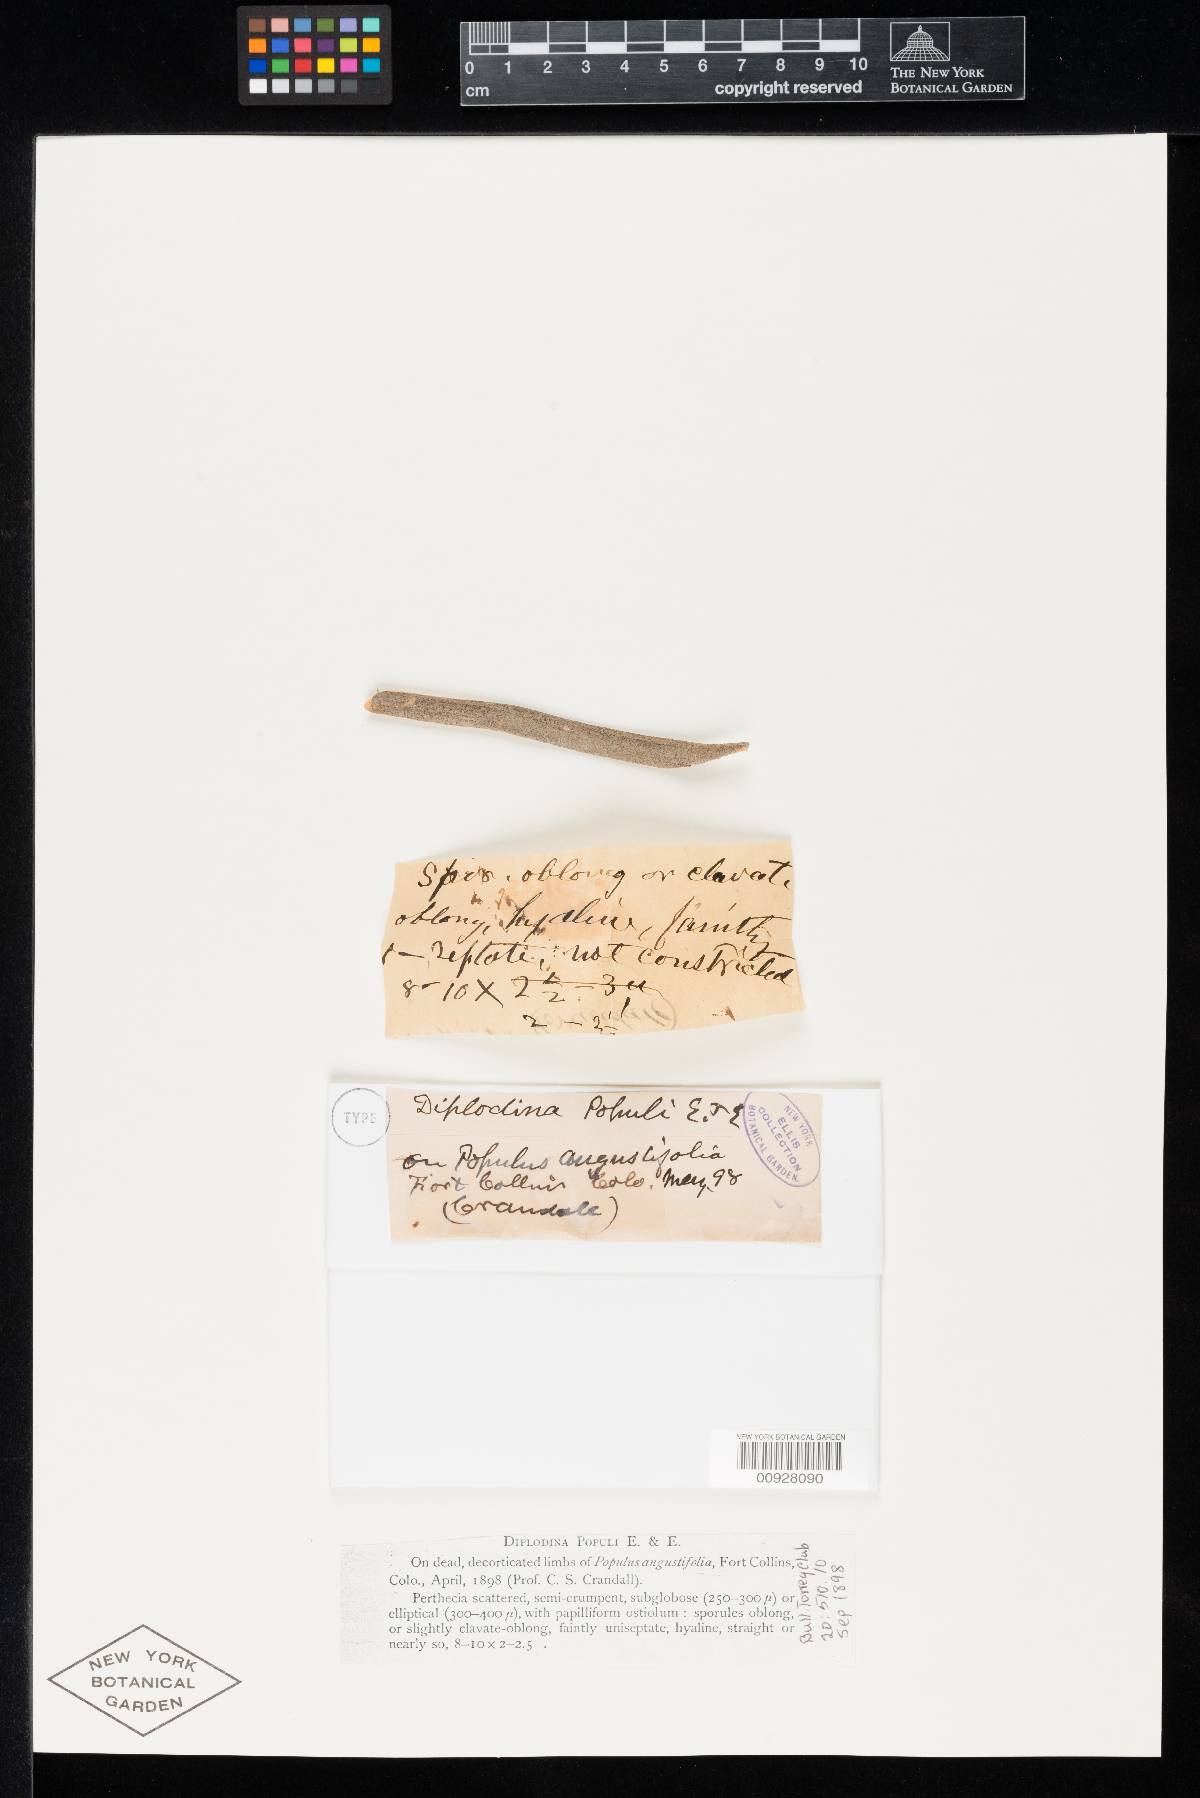 0 1 2 3 4 5 6 7 8 9 10
cm
copyright reserved
THE NEW YORK
BOTANICAL GARDEN
Spor. oblong or clavate
oblong, hyaline, faintly
1-septate, not constricted
8-10 X 2 1/2 - 3 µ
2 - 2 1/2
TYPE
Diplodina Populi E. & E
on Populus angustifolia
Fort Collins Colo. May 98
(Crandall)
NEW YORK
BOTANICAL GARDEN.
ELLIS
COLLECTION
NEW YORK BOTANICAL GARDEN
00928090
DIPLODINA POPULI E. & E.
On dead, decorticated limbs of Populus angustifolia, Fort Collins,
Colo., April, 1898 (Prof. C. S. Crandall).
Perthecia scattered, semi-erumpent, subglobose (250–300 µ) or
elliptical (300–400 µ), with papilliform ostiolum : sporules oblong,
or slightly clavate-oblong, faintly uniseptate, hyaline, straight or
nearly so, 8–10 × 2–2.5 .
Bull Torrey Club
20:510. 10
Sep 1898
NEW YORK
BOTANICAL
GARDEN